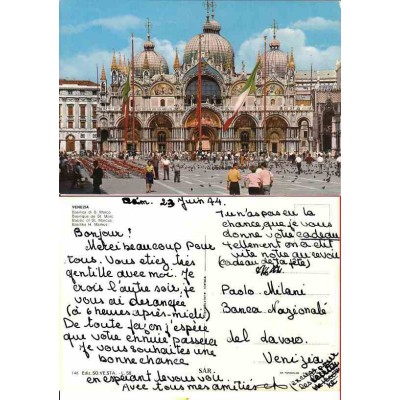 VENEZIA
Basilica di S. Marco
Basilique de St. Marc
Basilic of St. Marcus
Basilika St. Markus
Dim. 23 Juin 44.
Bonjour!
Merci beaucoup pour
tous. Vous étiez très
gentille avec moi. Je
crois l'autre soir, je
vous ai derangée
(à 6 heures après-midi)
De toute façon j'espère
que votre ennuie passera
Je vous souhaites une
bonne chance
en espérant le vous voir.
Avec tous mes amitiés et
Tu n'as pas eu la
chance que je vous
donne votre cadeau
tellement on a dit
vite notre au revoir
(cadeau de la fête)
Paolo Milani
Banca Nazionale
del Lavoro
Venizia
146 Ediz. BO.VE.STA. - L. 50
SAR